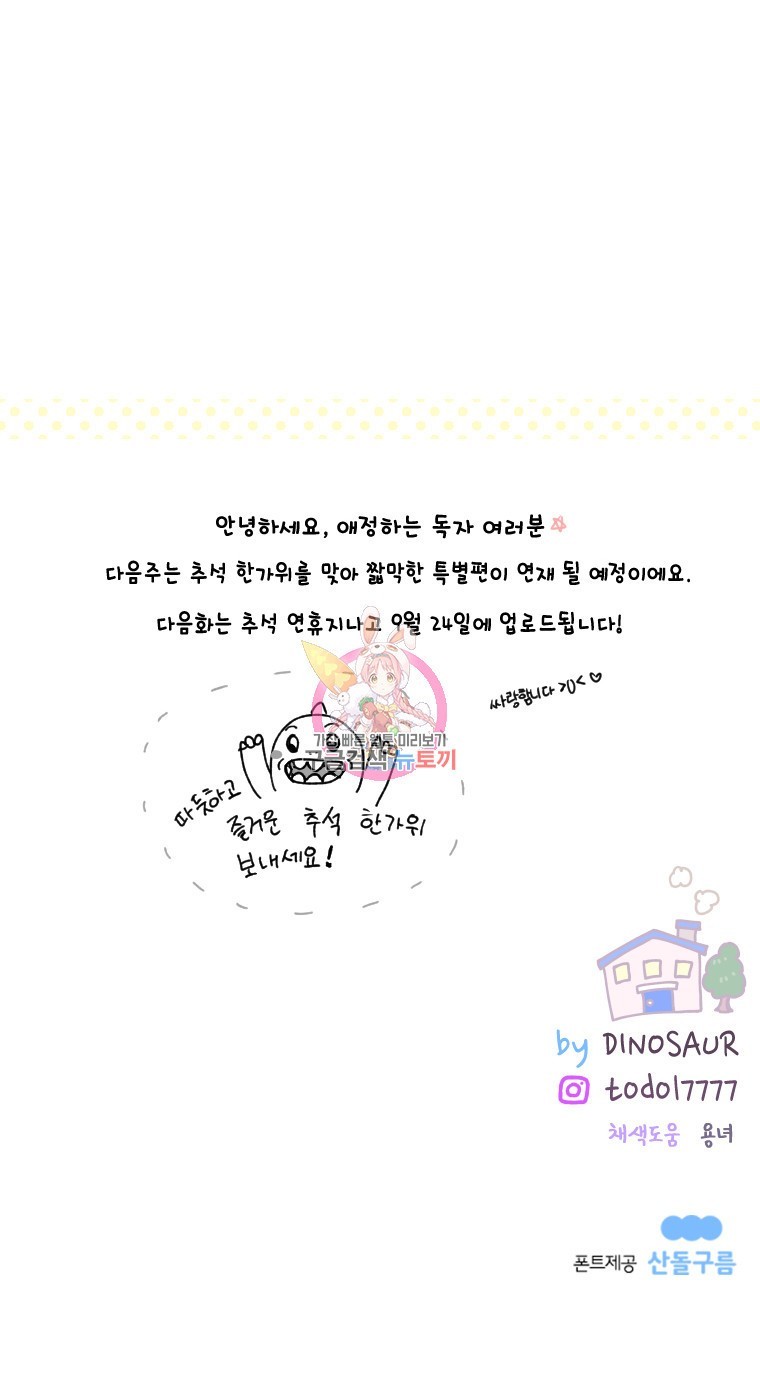 안녕하세요, 애정하는 독자 여러분
다음주는 추석 한가위를 맞아 짧막한 특별편이 연재 될 예정이에요.
다음화는 추석 연휴지나고 9월 24일에 업로드됩니다!
싸랑합니다 >0< ♡
가장 빠른 웹툰 미리보기
구글검색 뉴토끼
따듯하고
즐거운 추석 한가위
보내세요!
by DINOSAUR
todol7777
채색도움 용녀
폰트제공 산돌구름